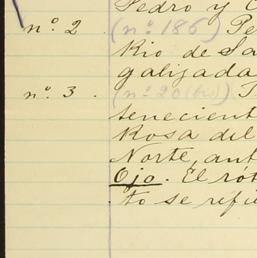 Pedro y
nº 2. (nº 186) Pe
Rio de Sa
galizada
nº 3. (nº 20(bis)) T
tenecient
Rosa del
Norte, ant
Ojo. El rót
to se refie